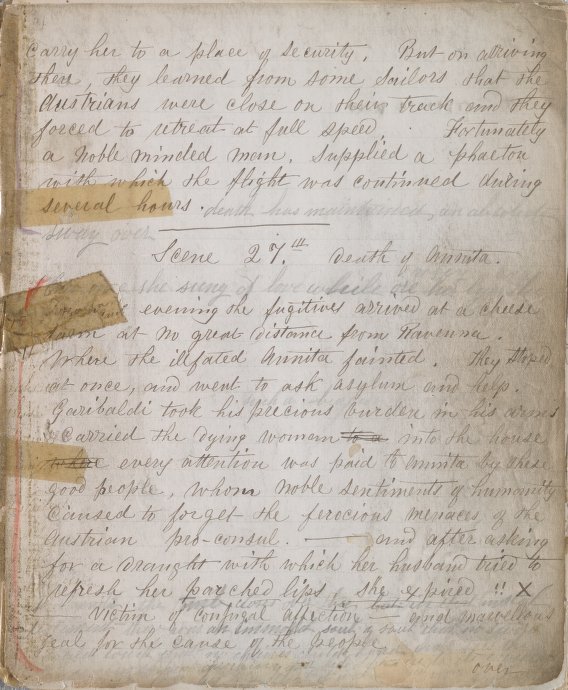 carry her to a place of security. But on arriving
there, they learned from some sailors that the
Austrians were close on their track and they
forced to retreat at full speed. Fortunately
a noble minded man, supplied a phaeton
with which the flight was continued during
several hours. death has maintained, an absolute
sway over
Scene 27.th death of Annita.
evening the fugitives arrived at a cheese
farm at no great distance from Ravenna.
Where the illfated Annita fainted. They stoped
at once, and went to ask asylum and help.
Garibaldi took his precious burden in his arms
& carried the dying woman to a into the house
where every attention was paid to Annita by these
good people, whom noble sentiments of humanity
caused to forget the ferocious menaces of the
Austrian pro-consul. — and after asking
for a draught with which her husband tried to
refresh her parched lips, she expired !! X
Victim of conjugal affection — and marvellous
zeal for the cause of the people
over